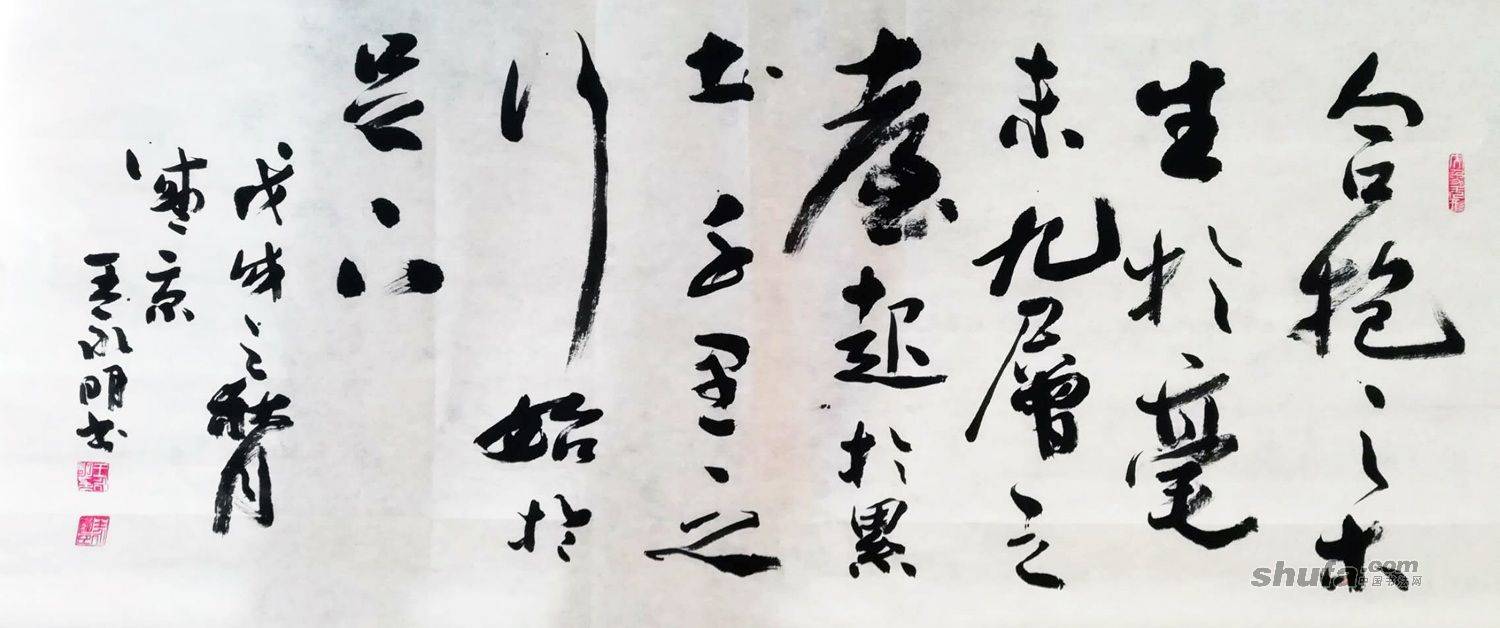 合抱之木
生於毫
末九層之
臺起於累
土千里之
行始於
足下
戊戌之秋月
京
王永明书
shufa.com
中国书法网